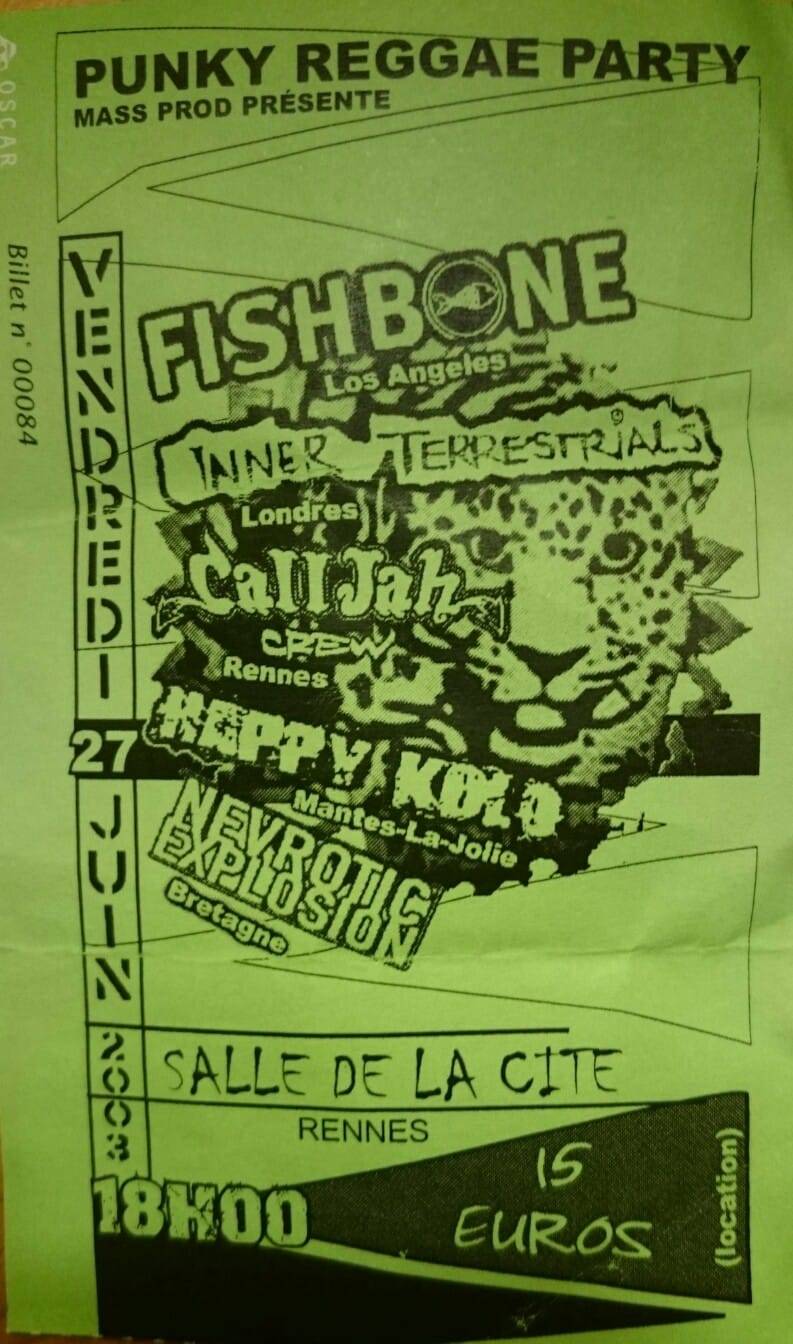 PUNKY REGGAE PARTY
MASS PROD PRÉSENTE
OSCAR
Billet n° 00084
VENDREDI
27
JUIN
2003
FISHBONE
Los Angeles
INNER TERRESTRIALS
Londres
Call Jah
CREW
Rennes
HEPPY KOLO
Mantes-La-Jolie
NEVROTIC
EXPLOSION
Bretagne
SALLE DE LA CITE
RENNES
18H00
15
EUROS
(location)